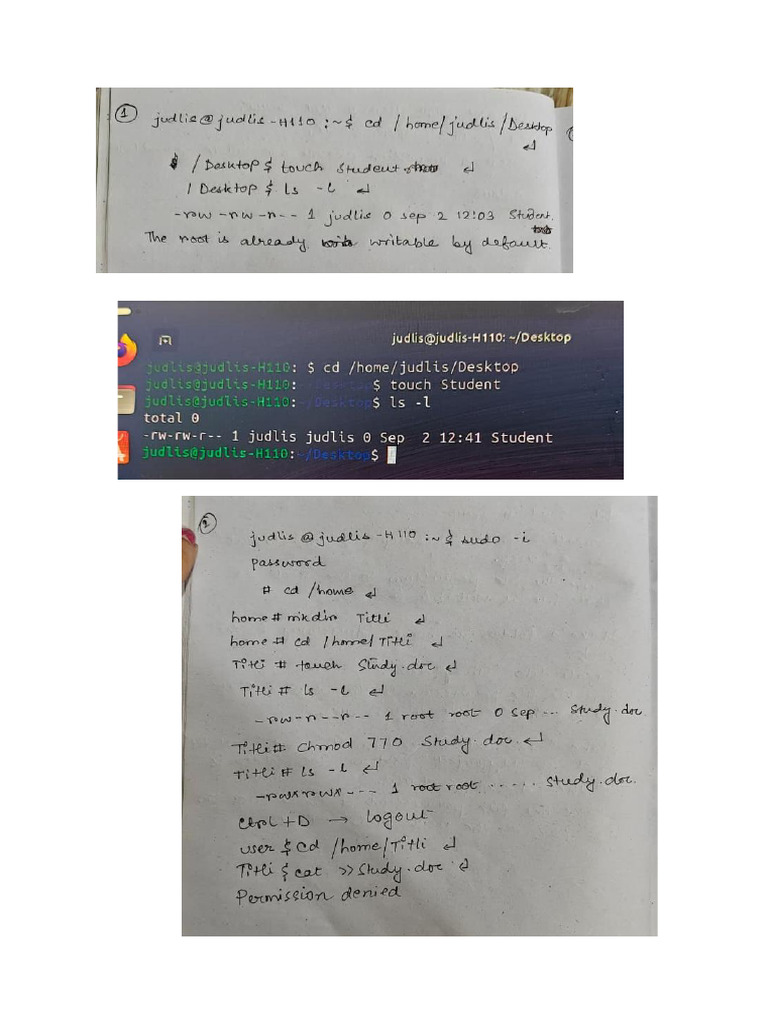 1
judlis@judlis-H110:~$ cd /home/judlis/Desktop ↵
/Desktop$ touch Student ↵
/Desktop$ ls -l ↵
-rw-rw-r-- 1 judlis 0 sep 2 12:03 Student.
The root is already writable by default.
judlis@judlis-H110: ~/Desktop
judlis@judlis-H110: $ cd /home/judlis/Desktop
judlis@judlis-H110:~/Desktop$ touch Student
judlis@judlis-H110:~/Desktop$ ls -l
total 0
-rw-rw-r-- 1 judlis judlis 0 Sep 2 12:41 Student
judlis@judlis-H110:~/Desktop$
2
judlis@judlis-H110:~$ sudo -i
password
# cd /home ↵
home# mkdir Titli ↵
home# cd /home/Titli ↵
Titli # touch Study.doc ↵
Titli# ls -l ↵
-rw-r--r-- 1 root root 0 sep ... Study.doc
Titli# chmod 770 Study.doc ↵
Titli# ls -l ↵
-rwxrwx--- 1 root root ...... Study.doc.
Ctrl+D → logout
user $ cd /home/Titli ↵
Titli $ cat >> Study.doc ↵
Permission denied